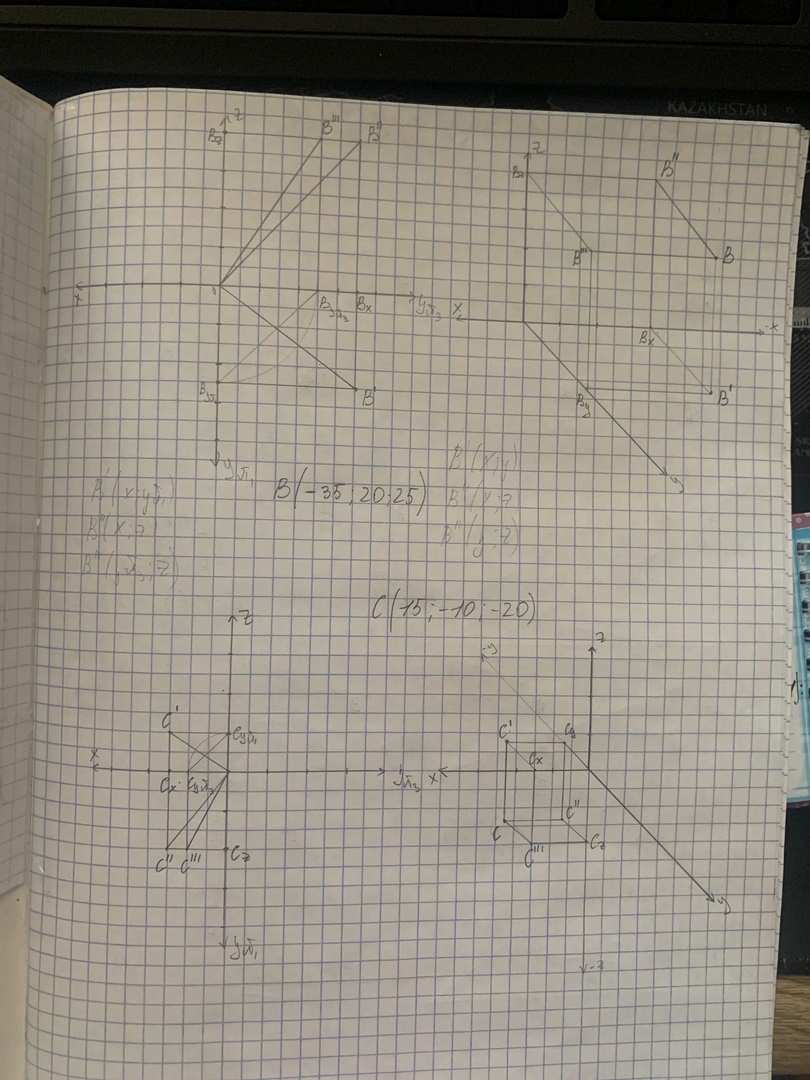 KAZAKHSTAN
z
Bz
B'''
B''
x
0
By π₃
Bx
y π₃
By π₁
B'
y π₁
z
Bz
B''
B'''
B
x
Bx
-x
By
B'
y
B'(x; yπ₁)
B''(x; z)
B'''(yπ₃; z)
B(-35; 20; 25)
B'(x; y)
B''(x; z)
B'''(y; z)
C(15; -10; -20)
z
C'
Cyπ₁
x
Cx
Cyπ₃
yπ₃
C''
C'''
Cz
yπ₁
-y
z
C'
Cy
Cx
x
C
C''
C'''
Cz
y
-z